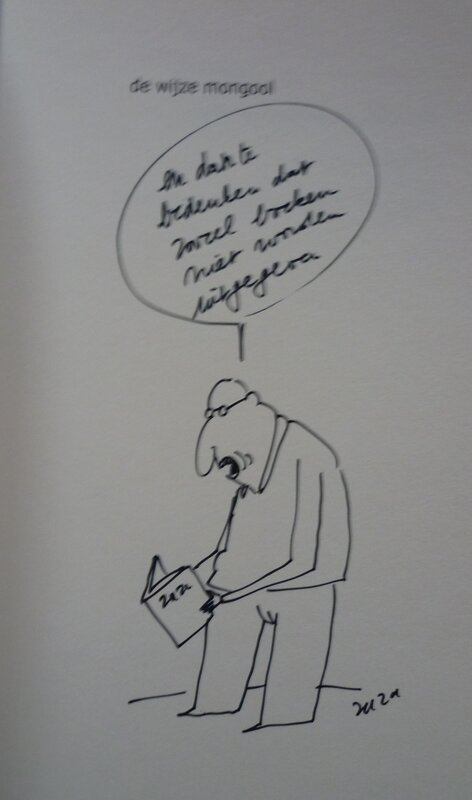 de wijze mongool
En dan te
bedenken dat
zoveel boeken
niet worden
uitgegeven
zaza
zaza